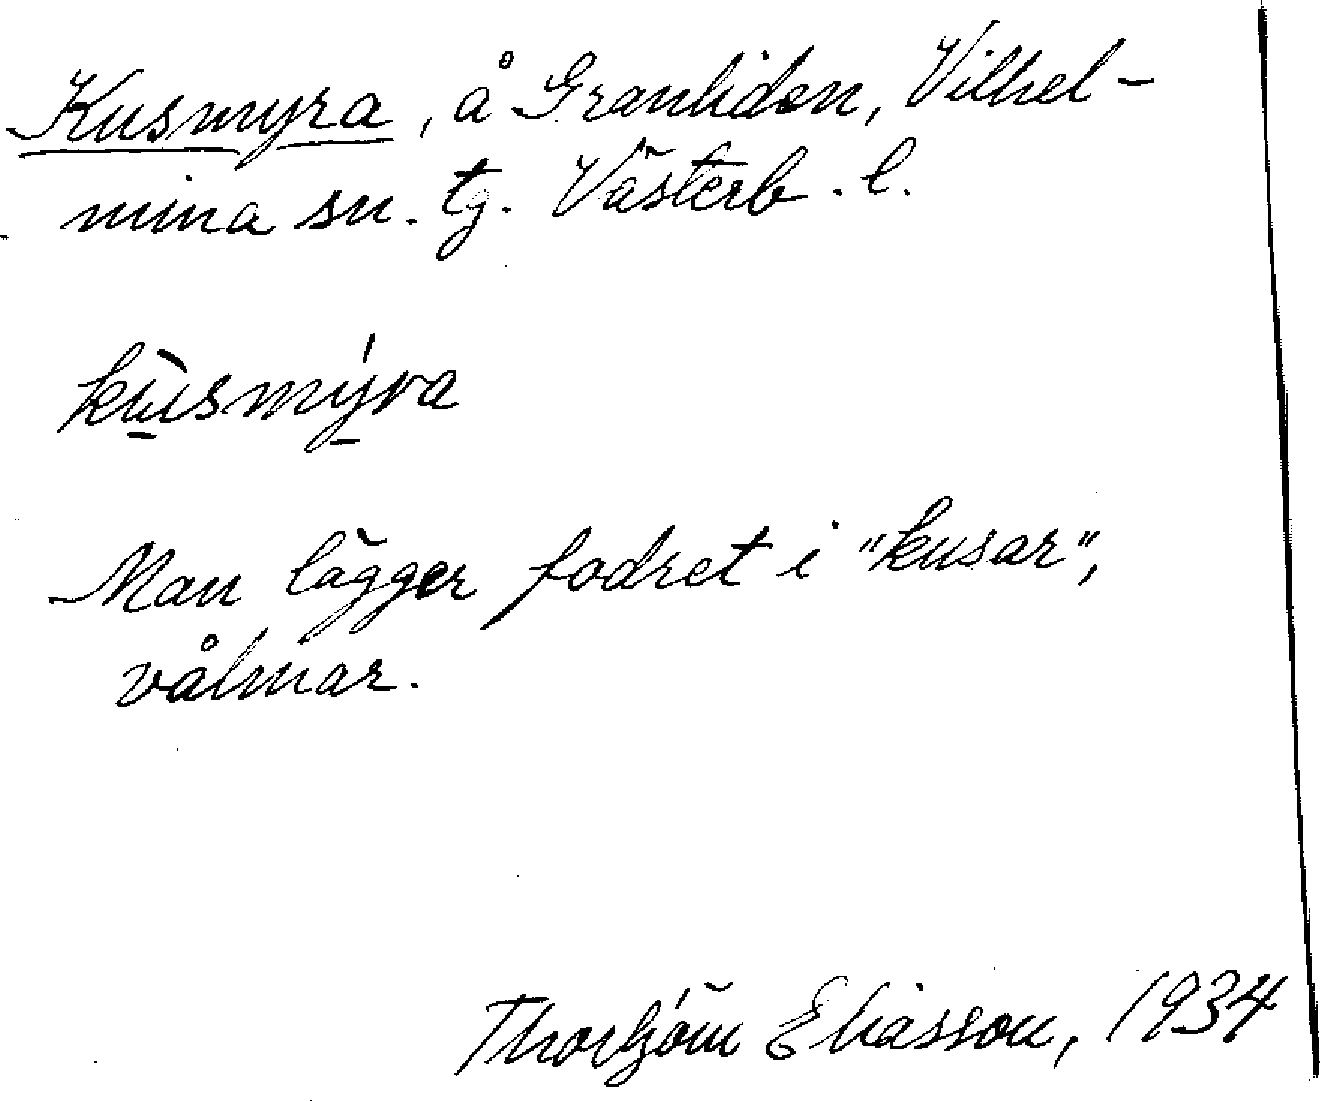 Kusmyra, å Granliden, Vilhel-
mina sn. tg. Västerb. l.
kùsmýra
Man lägger fodret i "kusar",
vålmar.
Thorbjörn Eliasson, 1934